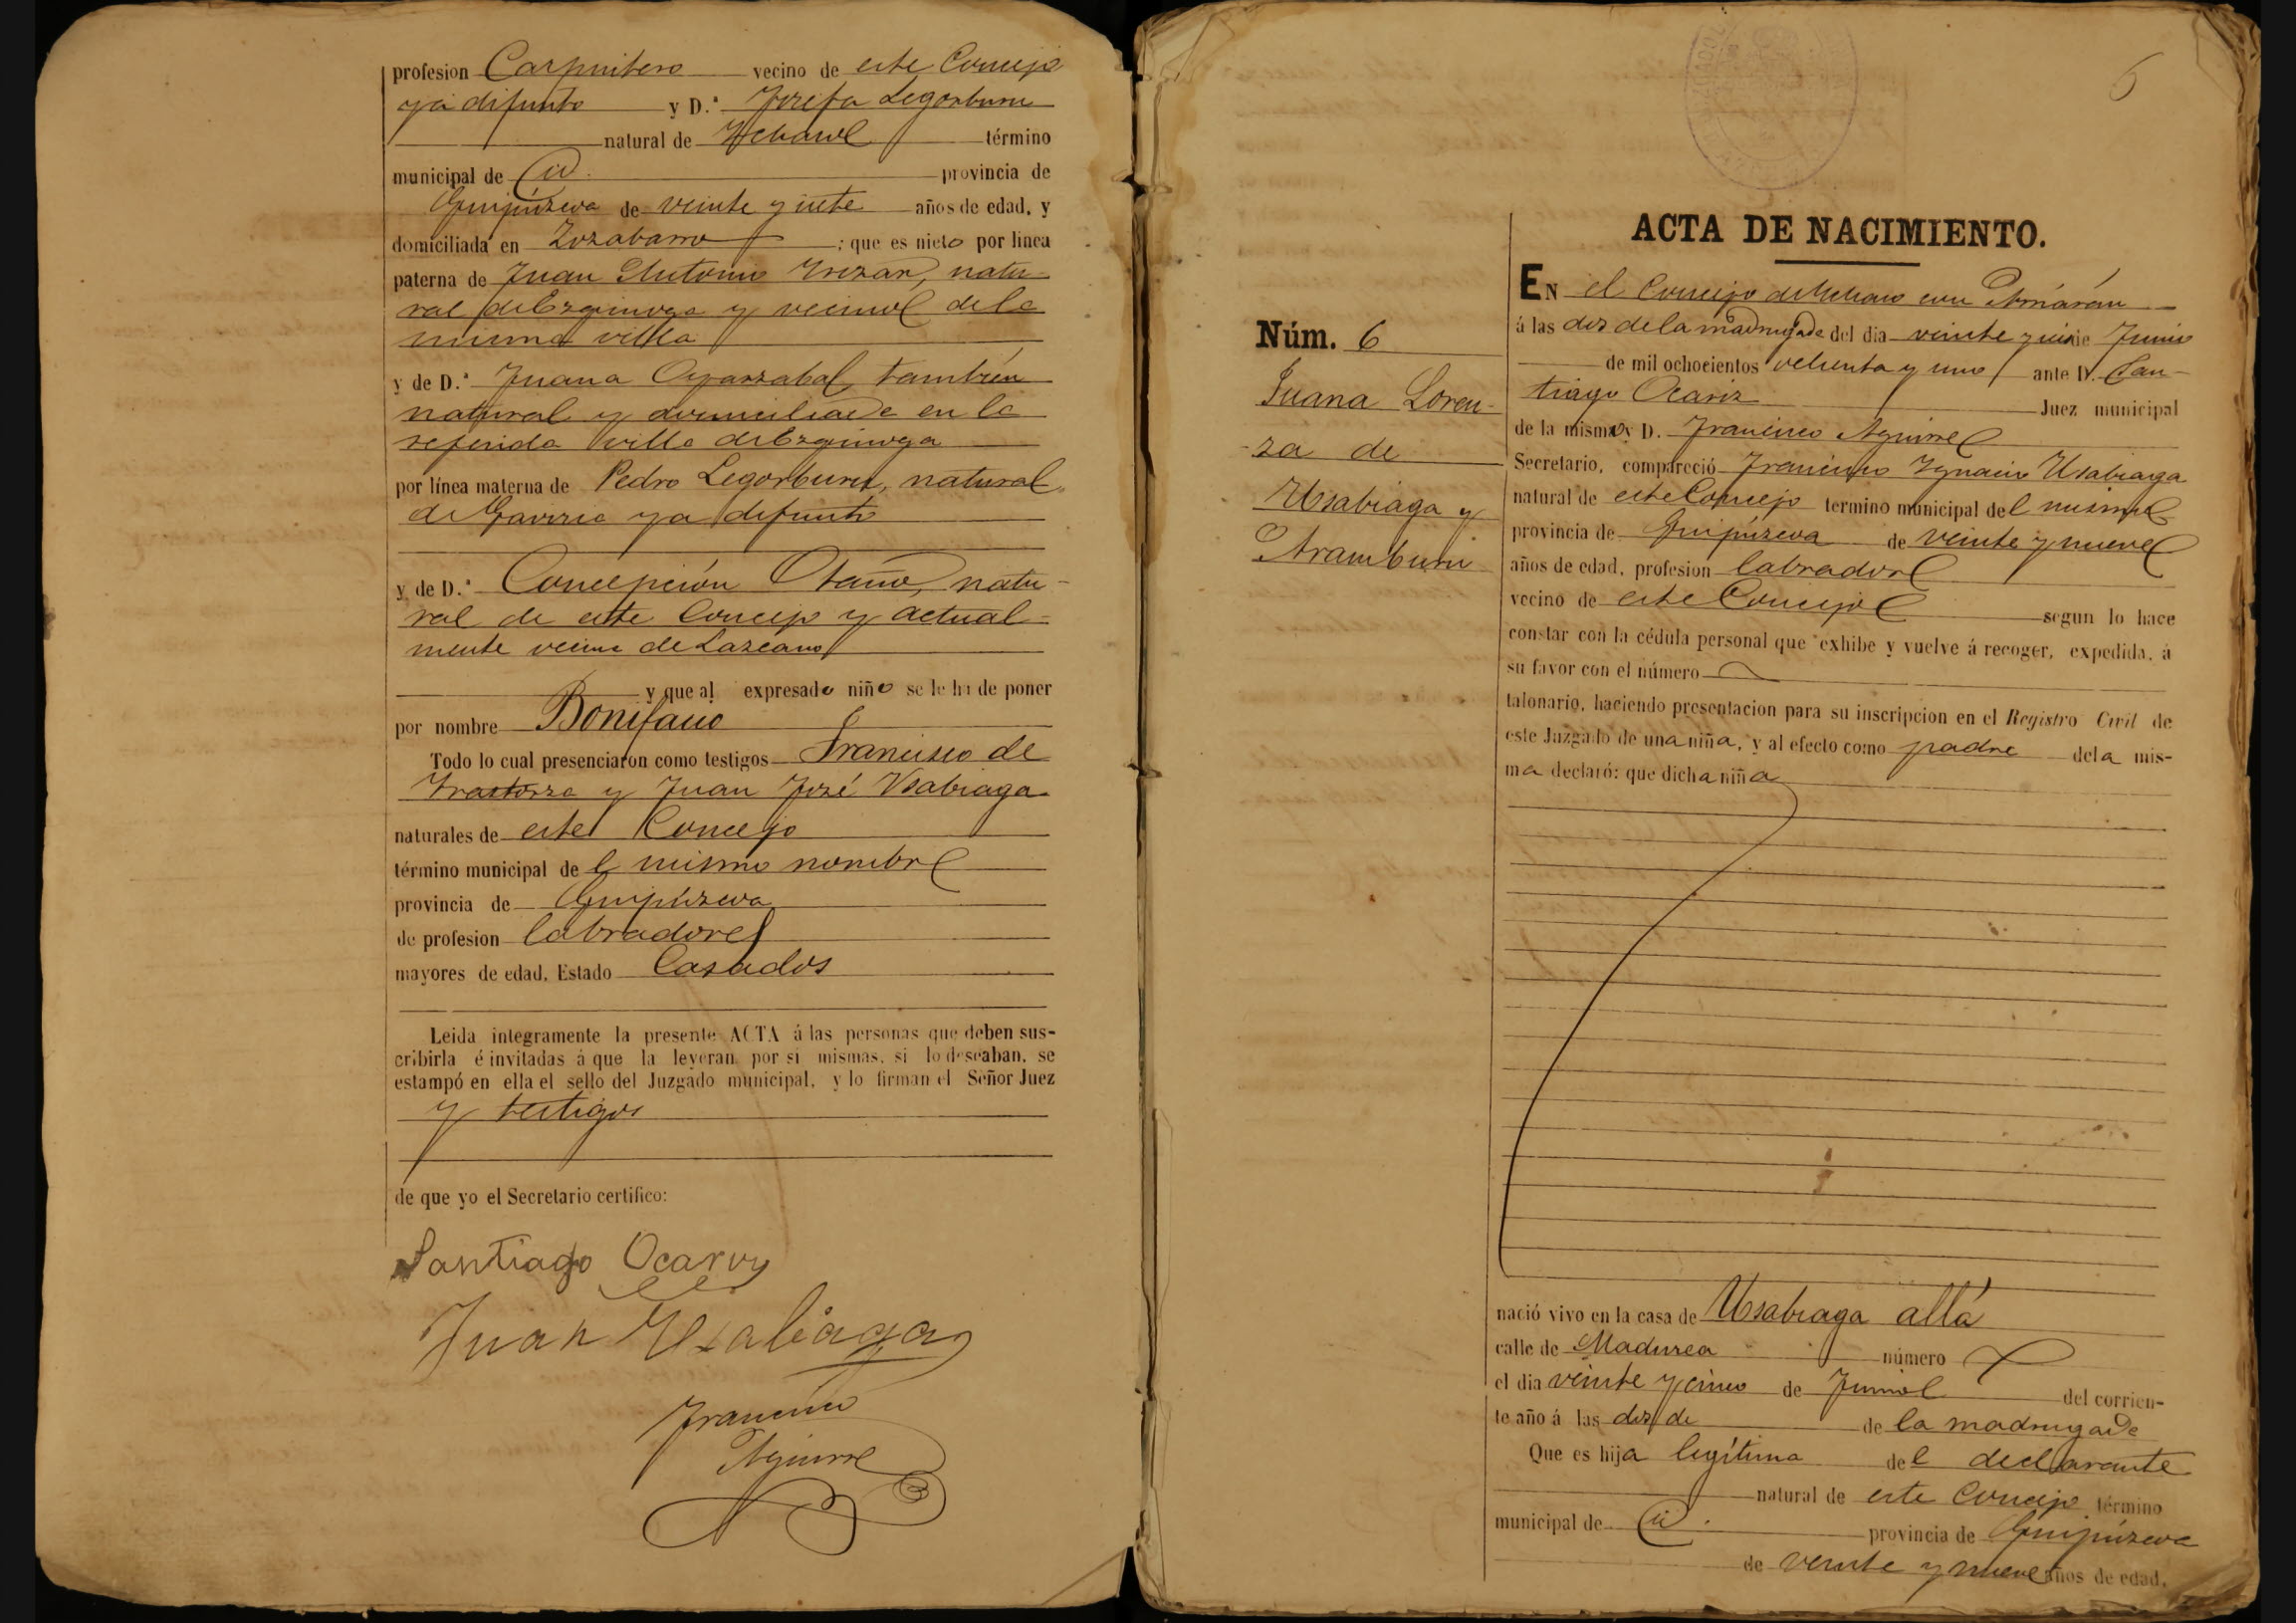 profesion Carpintero vecino de este Concejo
ya difunto y D.ª Josefa Legorburu
natural de Ychaso término
municipal de id. provincia de
Guipúzcoa de veinte y siete años de edad, y
domiciliada en Zozabarro ; que es nieto por línea
paterna de Juan Antonio Yrizar, natu-
ral de Ezquioga y vecino de la
misma villa
y de D.ª Juana Oyarzabal, también
natural y domiciliada en la
referida villa de Ezquioga
por línea materna de Pedro Legorburu, natural
de Gaviria ya difunto
y de D.ª Concepción Otaño, natu-
ral de este Concejo y actual-
mente vecina de Lazcano
y que al expresado niño se le ha de poner
por nombre Bonifacio
Todo lo cual presenciaron como testigos Francisco de
Yrastorza y Juan José Usabiaga
naturales de este Concejo
término municipal de el mismo nombre
provincia de Guipúzcoa
de profesion labradores
mayores de edad, Estado Casados
Leida integramente la presente ACTA á las personas que deben sus-
cribirla é invitadas á que la leyeran por si mismas, si lo deseaban, se
estampó en ella el sello del Juzgado municipal, y lo firman el Señor Juez
y testigos
de que yo el Secretario certifico:
Santiago Ocariz
Juan Usabiaga
Francisco
Aguirre
6
ACTA DE NACIMIENTO.
Núm. 6
Juana Loren-
-za de
Usabiaga y
Aramburu
EN el Concejo de Ychaso con Arriarán
á las diez de la madrugada del dia veinte y siete Junio
de mil ochocientos ochenta y uno ante D. San-
tiago Ocariz Juez municipal
de la misma y D. Francisco Aguirre
Secretario, compareció Francisco Ygnacio Usabiaga
natural de este Concejo termino municipal del mismo
provincia de Guipúzcoa de veinte y nueve
años de edad, profesion labrador
vecino de este Concejo segun lo hace
constar con la cédula personal que exhibe y vuelve á recoger, expedida, á
su favor con el número
talonario, haciendo presentacion para su inscripcion en el Registro Civil de
este Juzgado de una niña, y al efecto como padre de la mis-
ma declaró: que dicha niña
nació vivo en la casa de Usabiaga allá
calle de Madurea número
el dia veinte y cinco de Junio del corrien-
te año á las diez de de la madrugada
Que es hija legítima del declarante
natural de este Concejo término
municipal de id. provincia de Guipúzcoa
de veinte y nueve años de edad,